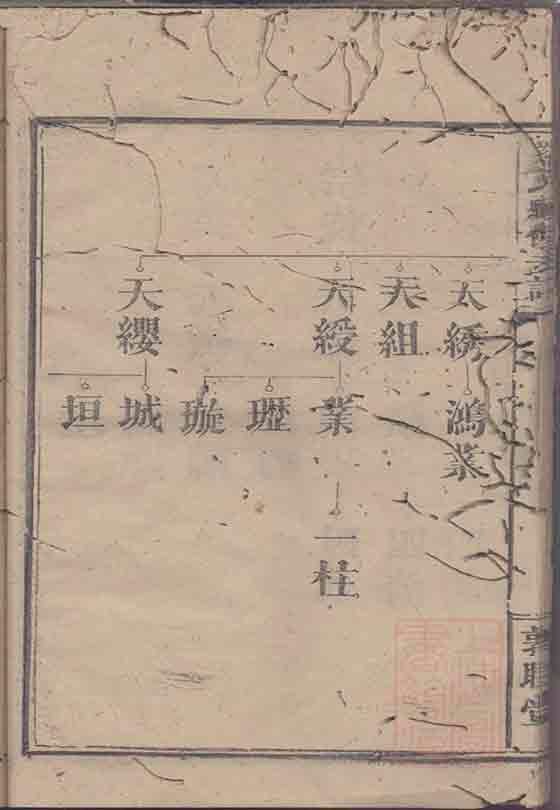 天綉
鴻業
天組
天綬
業
一柱
瓑
璇
天纓
城
垣
敦睦堂